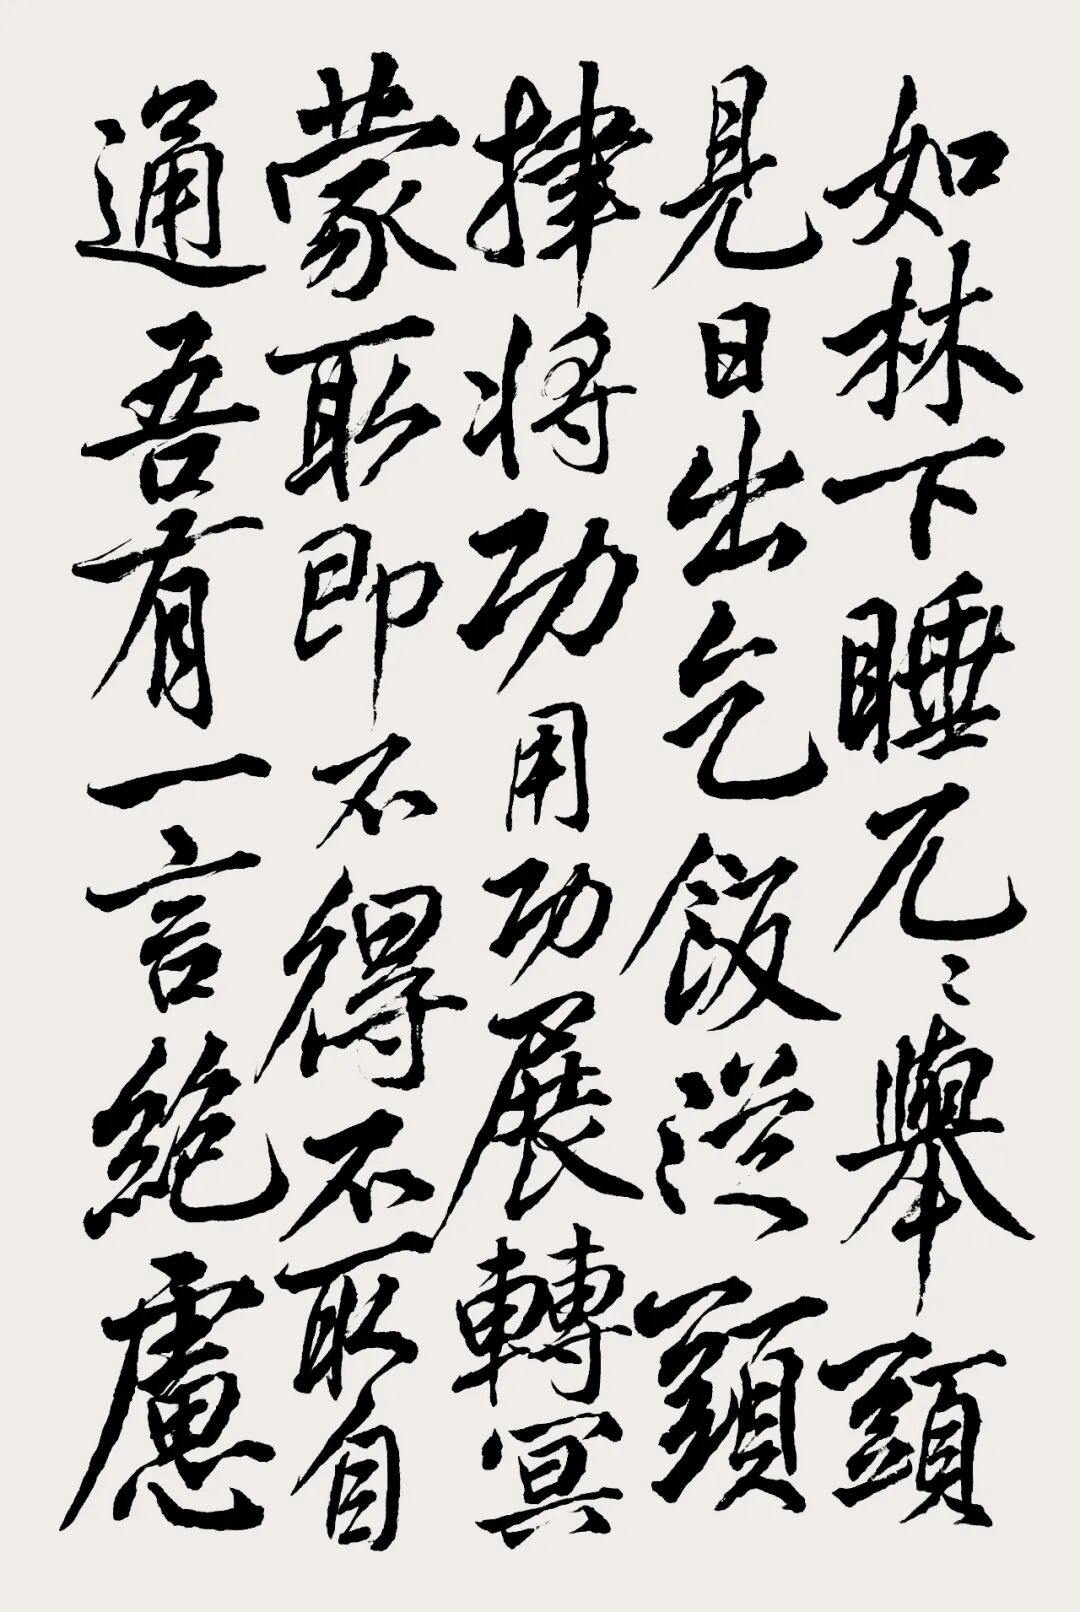 如林下睡兀々舉頭
見日出乞飯從頭
捧將功用功展轉冥
蒙取即不得不取自
通吾有一言絕慮